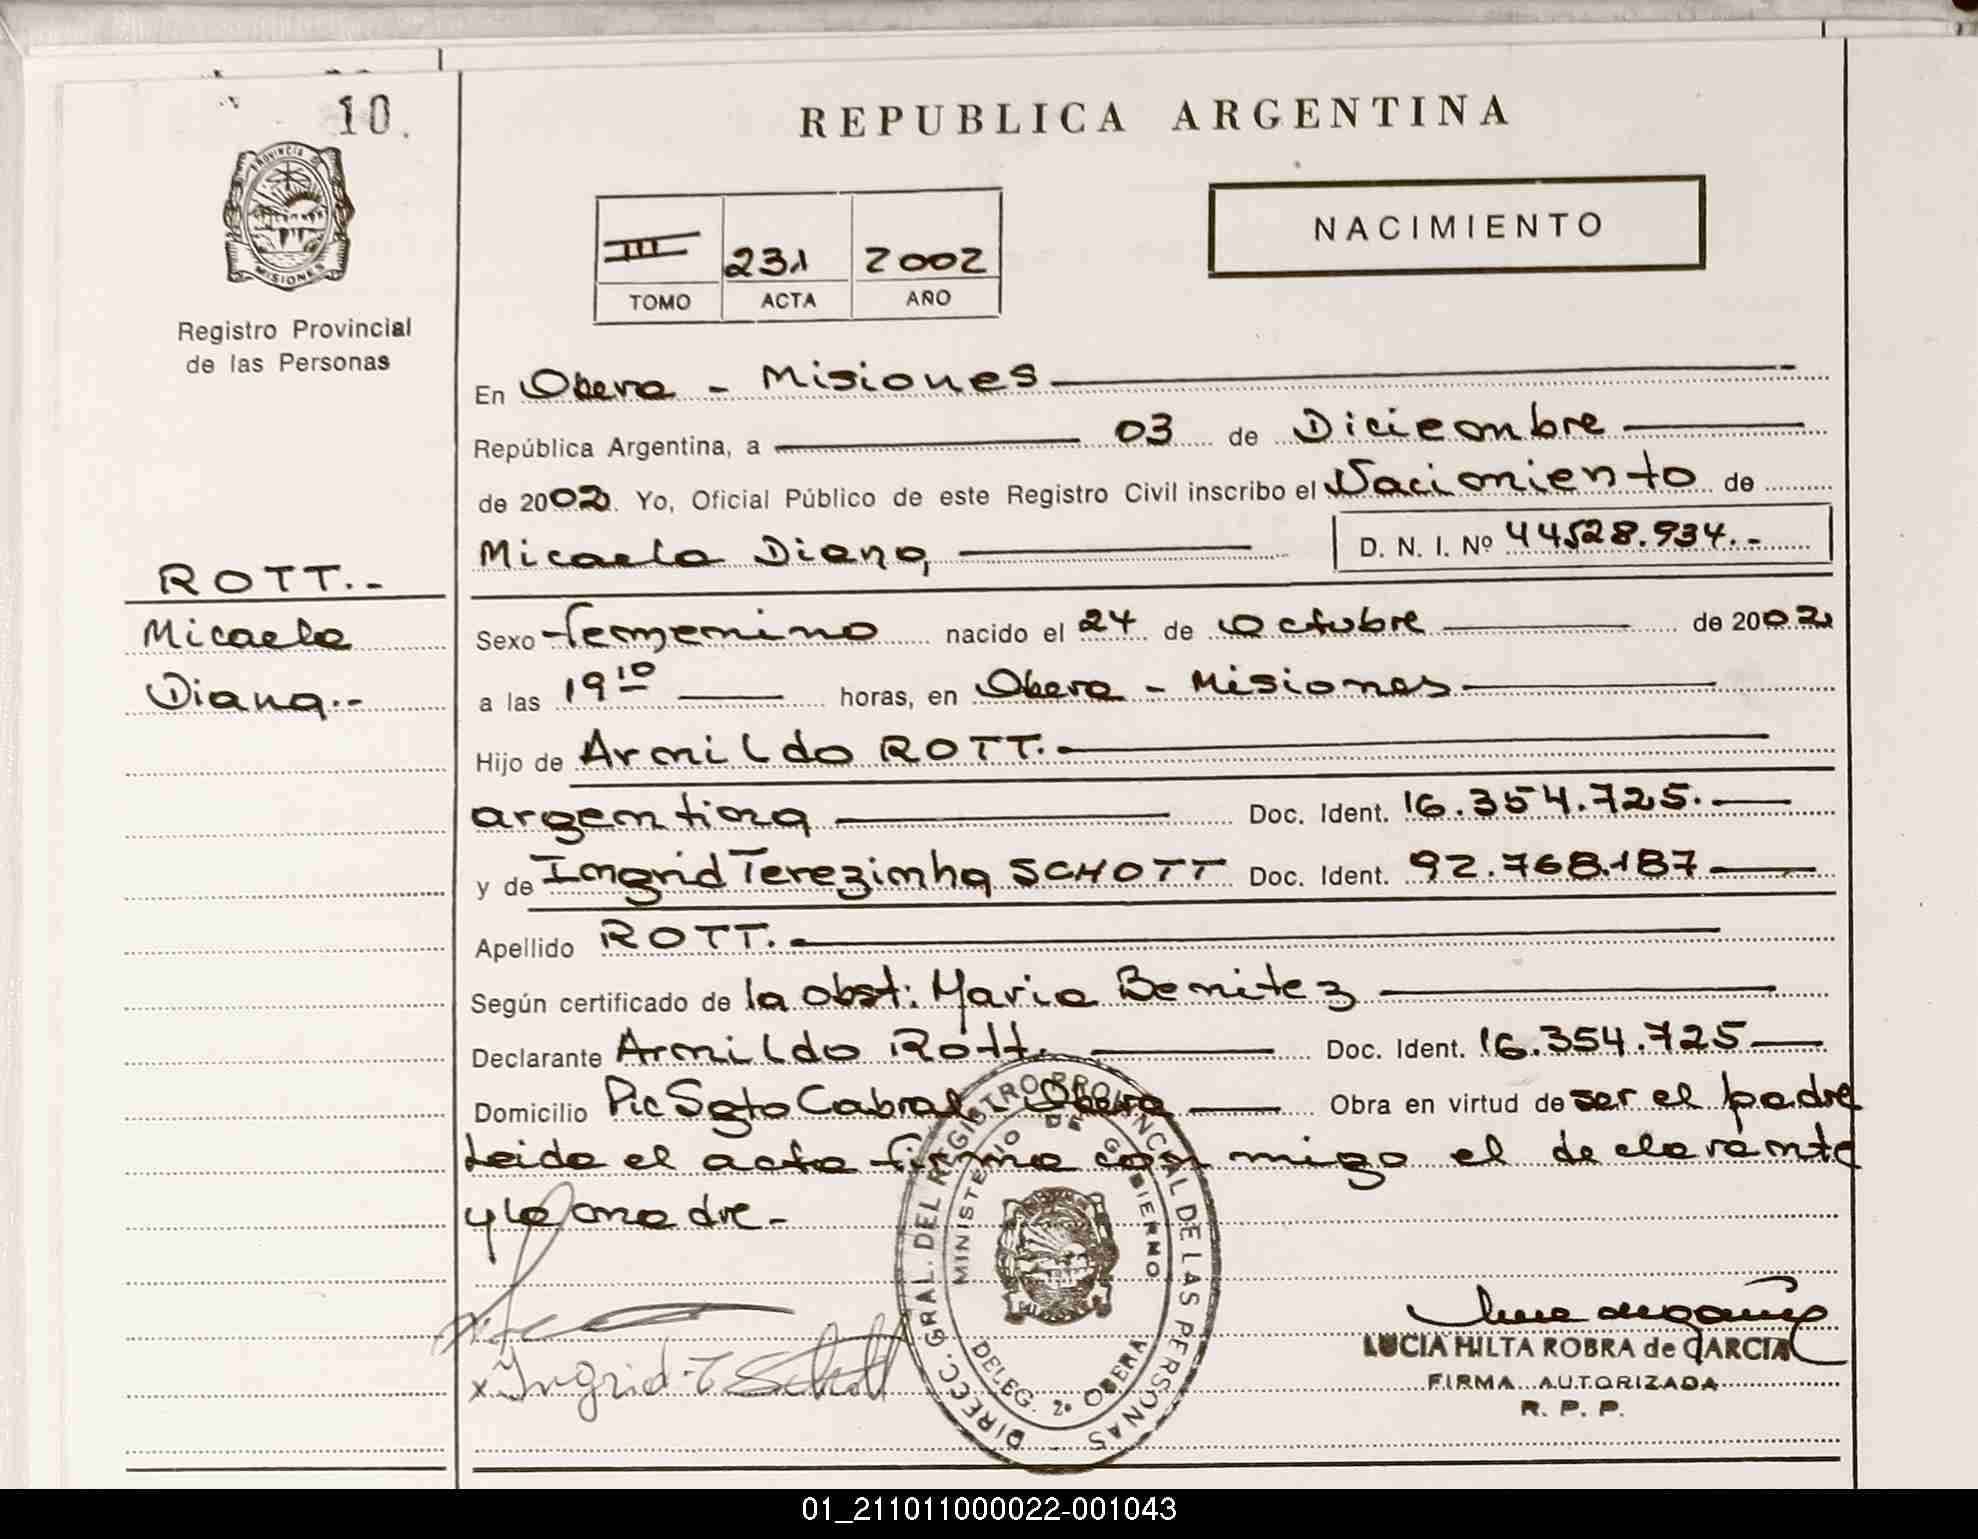 10.
PROVINCIA D
MISIONES
Registro Provincial
de las Personas
ROTT.-
Micaela
Diana.-
REPUBLICA ARGENTINA
NACIMIENTO
III 231 2002
TOMO ACTA AÑO
En Obera - Misiones
República Argentina, a 03 de Diciembre
de 2002. Yo, Oficial Público de este Registro Civil inscribo el Nacimiento de
Micaela Diana, D. N. I. Nº 44528.934.-
Sexo femenino nacido el 24 de Octubre de 2002
a las 19 10 horas, en Obera - Misiones
Hijo de Armildo ROTT.
argentina Doc. Ident. 16.354.725.
y de Ingrid Terezinha SCHOTT Doc. Ident. 92.768.187
Apellido ROTT.
Según certificado de la obst: Maria Benitez
Declarante Armildo Rott. Doc. Ident. 16.354.725
Domicilio Pic Sgto Cabral - Obera Obra en virtud de ser el padre
Leida el acta firma con migo el declarante
y la madre -
x Ingrid T. Schott
DIRECC. GRAL. DEL REGISTRO PROVINCIAL DE LAS PERSONAS
MINISTERIO DE GOBIERNO
DELEG. 2º OBERA
LUCIA HILTA ROBRA de GARCIA
FIRMA AUTORIZADA
R. P. P.
01_211011000022-001043